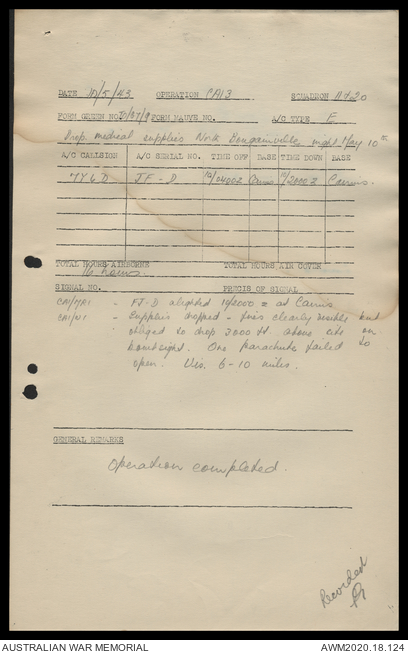 DATE 10/5/43 OPERATION CA13 SQUADRON 11 & 20
FORM GREEN NO. FORM MAUVE NO. A/C TYPE E
Drop medical supplies North Bougainville night May 10th
A/C CALLSIGN A/C SERIAL NO. TIME OFF BASE TIME DOWN BASE
7Y6D JF - D 10/0400Z Cairns 10/2000Z Cairns.
TOTAL HOURS AIRBORNE TOTAL HOURS AIR COVER
16 hours.
SIGNAL NO. PRECIS OF SIGNAL
- FJ-D alighted 10/2000 Z at Cairns
- Supplies dropped - fires clearly visible but
obliged to drop 3000 ft. above on
bombsight. One parachute failed to
open. Vis. 6-10 miles.
GENERAL REMARKS
Operation completed.
Recorded
AUSTRALIAN WAR MEMORIAL AWM2020.18.124